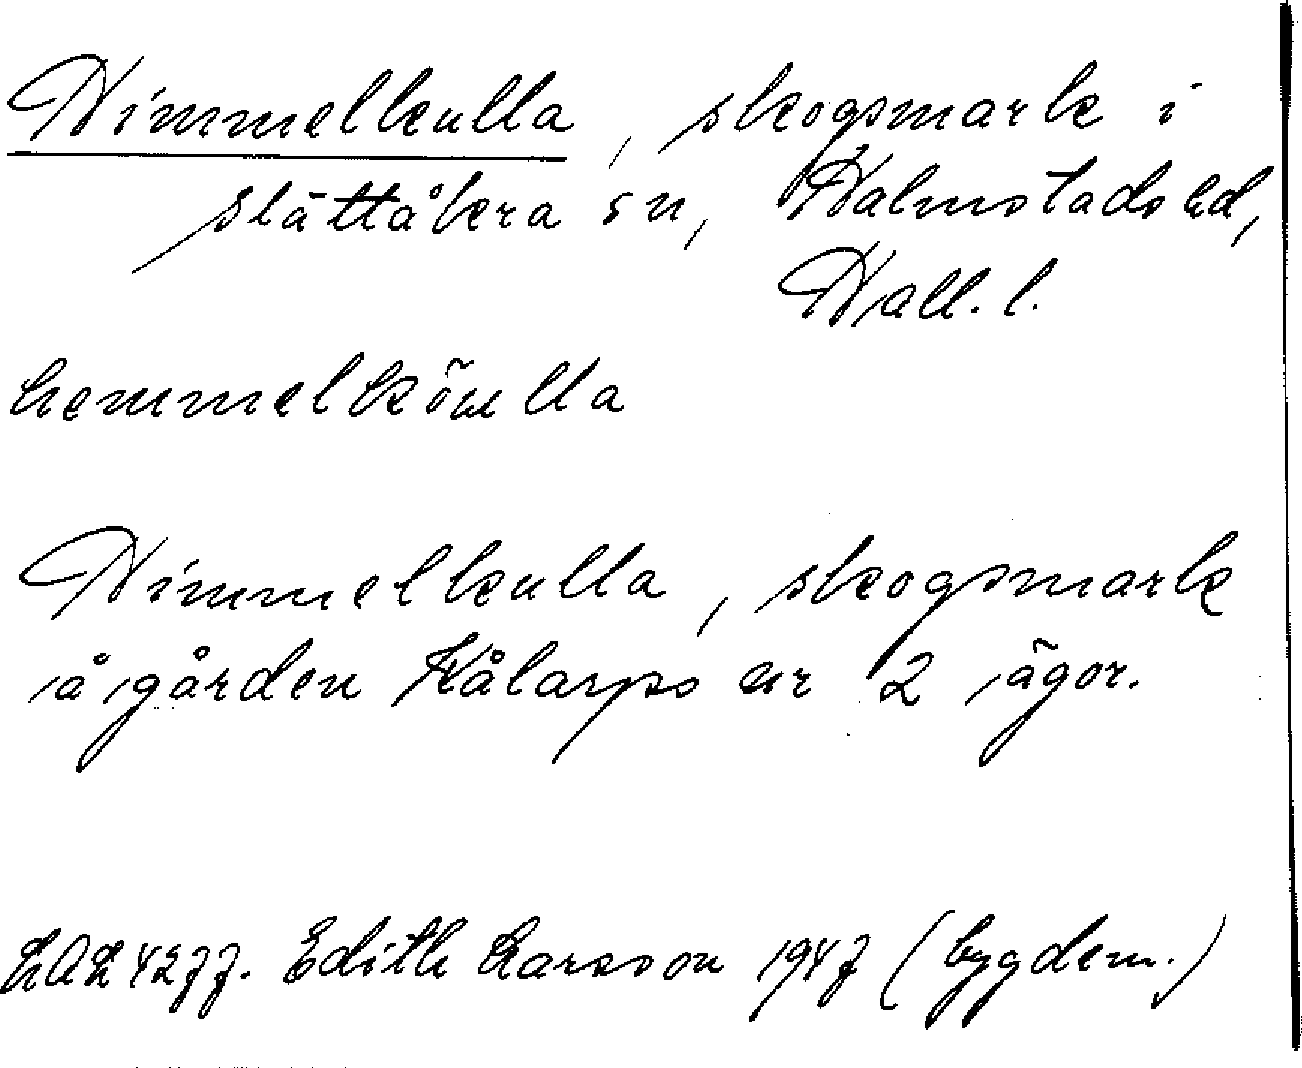 Himmelkulla, skogsmark i
Slättåkra sn, Halmstads hd,
Hall. l.
hemmelköulla
Himmelkulla, skogsmark
å gården Kålarps nr 2 ägor.
LAL 4277. Edith Larsson 1947 (bygdem.)